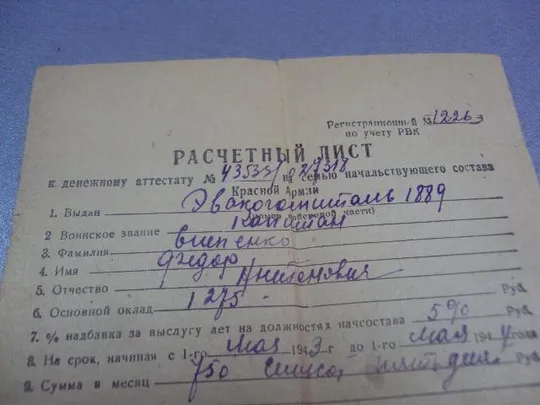 Регистрационный № 1226
по учету РВК
РАСЧЕТНЫЙ ЛИСТ
к денежному аттестату № на семью начальствующего состава
Красной Армии
1. Выдан Эвакогоспиталь 1889
2 Воинское звание капитан
3. Фамилия
4. Имя Федор
5. Отчество
6. Основной оклад 1275 Руб
7. % надбавка за выслугу лет на должностях начсостава 5% Руб.
8. На срок, начиная с 1-го мая 1943 г до 1-го мая 1944 года
9. Сумма в месяц 750 Руб